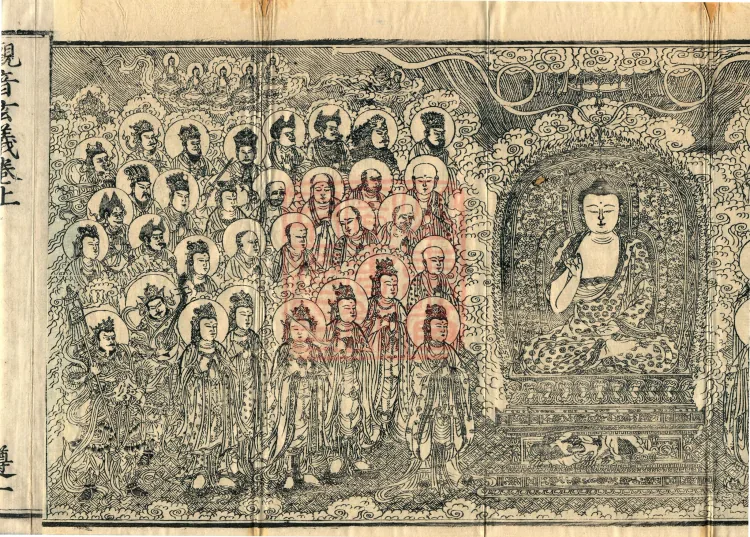 觀音玄義卷上
遵一